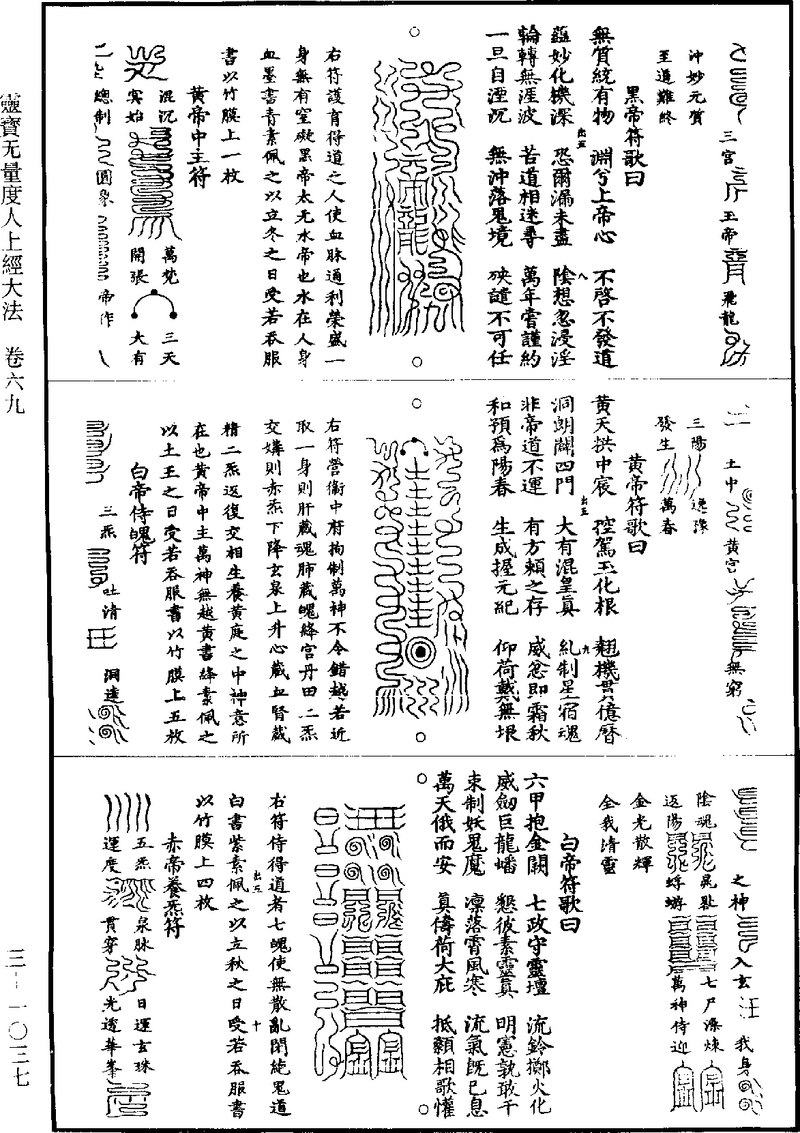 三宮 玉帝 飛龍
沖妙元質
至道難終
黑帝符歌曰
無質統有物 淵兮上帝心 不啓不發道
蘊妙化機深 恐爾漏未盡 陰想忽浸淫
輪轉無涯波 苦道相迷尋 萬年嘗謹約
一旦自湮沉 無沖落鬼境 殃譴不可任
右符護育得道之人使血脉通利榮盛一
身無有窒礙黑帝太无水帝也水在人身
血墨書青素佩之以立冬之日受若吞服
書以竹膜上一枚
黃帝中主符
混沉 萬梵 三天
寞始 開張 大有
總制 圓象 帝作
土中 黃宮 無窮
三陽 逸豫
發生 萬春
黃帝符歌曰
黃天拱中宸 控駕玉化根 翹機貫億曆
洞朗闢四門 大有混皇真 糺制星宿魂
非帝道不運 有方賴之存 威忿即霜秋
和預爲陽春 生成握元紀 仰荷戴無垠
右符營衛中府拘制萬神不令錯越若近
取一身則肝藏魂肺藏魄絳宮丹田二炁
交媾則赤炁下降玄泉上升心藏血腎藏
精二炁返復交相生養黃庭之中神意所
在也黃帝中主萬神無越黃書絳素佩之
以土王之日受若吞服書以竹膜上五枚
白帝侍魄符
三炁 吐清 洞達
之神 入玄 我身
陰魂 晁耻 七尸澡煉
返陽 蜉蝣 萬神侍迎
金光散輝
全我清靈
白帝符歌曰
六甲抱金闕 七政守靈壇 流鈴擲火化
威劒巨龍蟠 懇彼素靈真 明憲孰敢干
束制妖鬼魔 凛落霄風寒 流氣旣已息
萬天俄而安 真儔荷大庇 抵願相歌懽
右符侍得道者七魄使無散亂閉絶鬼道
白書紫素佩之以立秋之日受若吞服書
以竹膜上四枚
赤帝養炁符
五炁 泉脉 日運玄珠
運度 貫穿 光透華峯
靈寶无量度人上經大法 卷六九
三－一〇三七